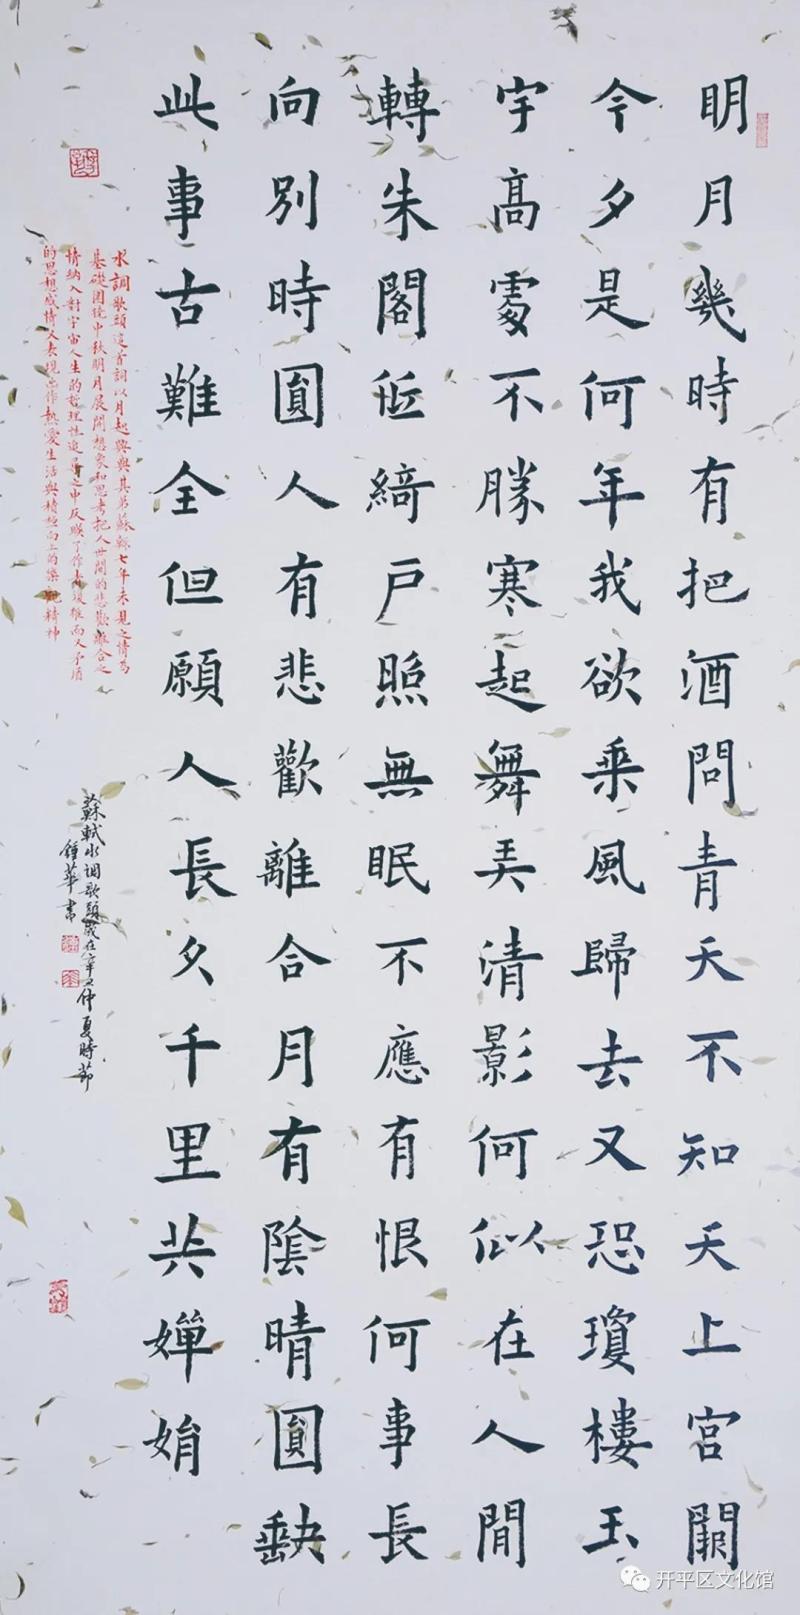 明月幾時有把酒問青天不知天上宮闕
今夕是何年我欲乘風歸去又恐瓊樓玉
宇高處不勝寒起舞弄清影何似在人間
轉朱閣低綺戶照無眠不應有恨何事長
向別時圓人有悲歡離合月有陰晴圓缺
此事古難全但願人長久千里共嬋娟
水調歌頭這首詞以月起興與其弟蘇轍七年未見之情為
基礎圍繞中秋明月展開想象和思考把人世間的悲歡離合之
情納入對宇宙人生的哲理性追尋之中反映了作者複雜而又矛盾
的思想感情又表現出作熱愛生活與積極向上的樂觀精神
蘇軾水調歌頭歲在辛丑仲夏時節
鍾華書
开平区文化馆